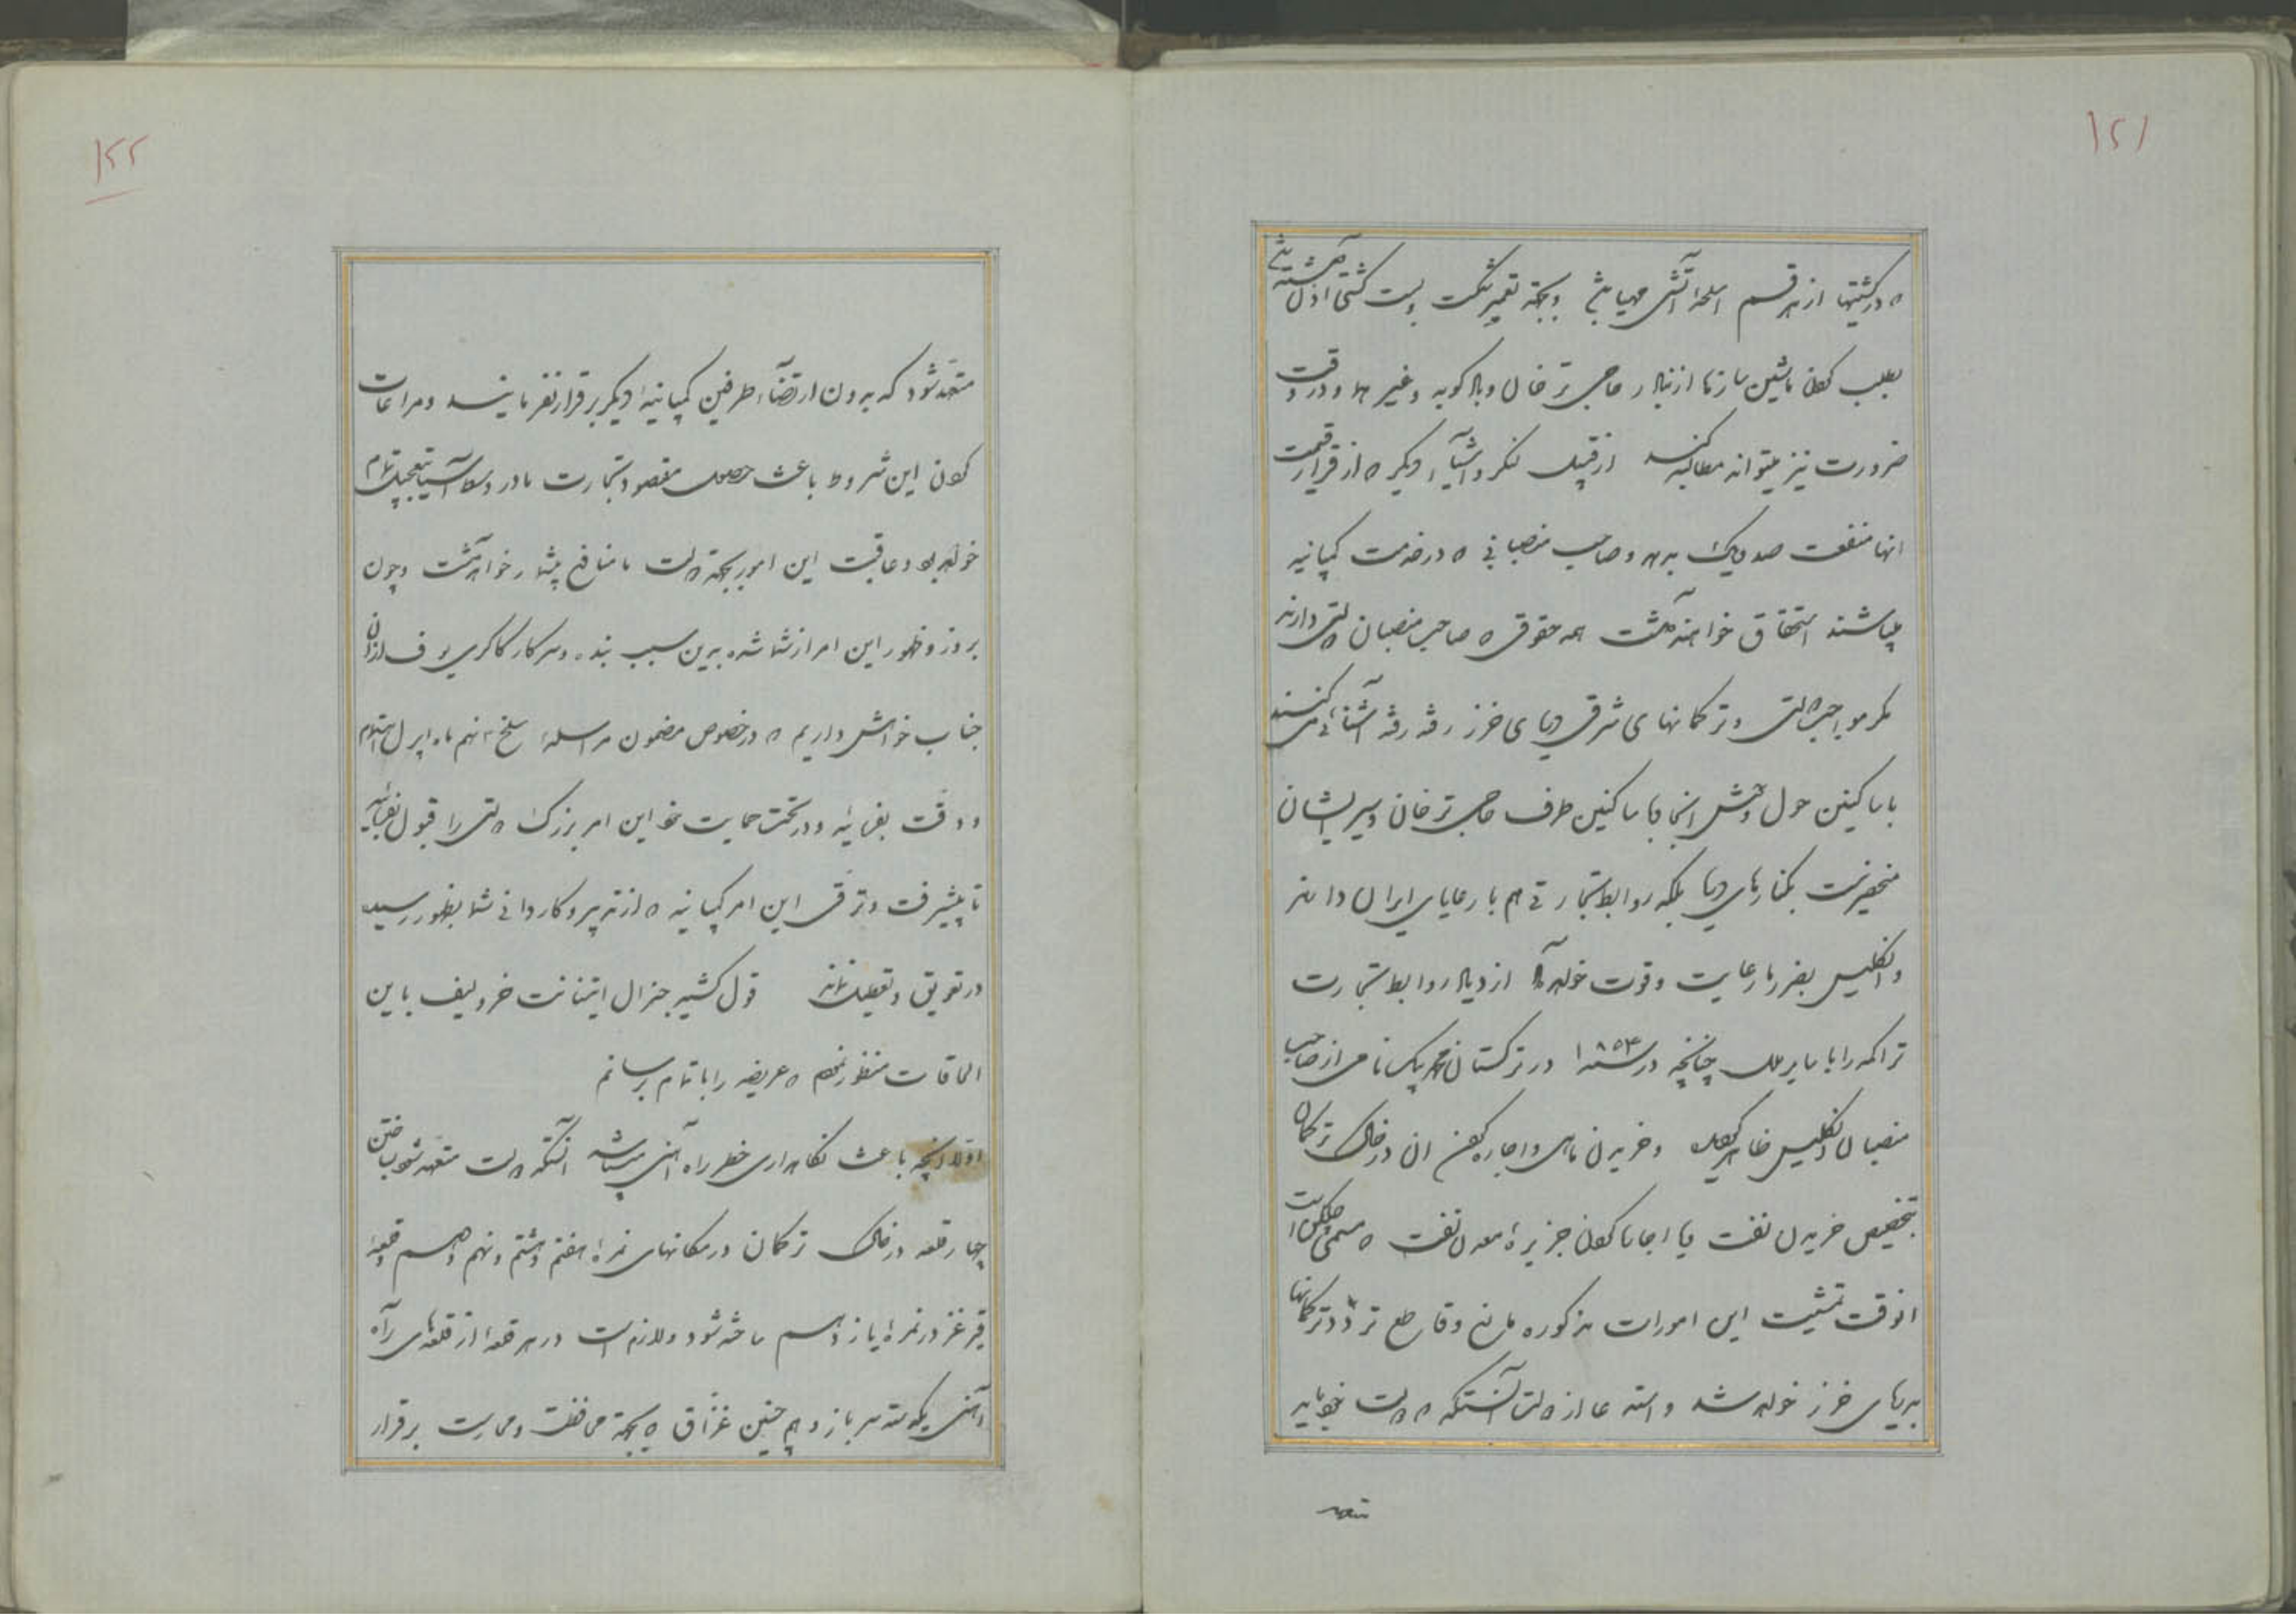 ۱۲۱
که در کشتیها از هر قسم اسلحه آتشی مهیا باشد و بجهة تعمیر شکست و بست کشتی اذن داشته باشد
بطلب کردن ماشین سازها از بنادر حاجی ترخان و بادکوبه و غیره و در وقت
ضرورت نیز میتواند مطالبه کنند از قبیل لنگر و اشیاء دیگر که از قرار قیمت
انها منفعت صد و یک بدهد و صاحب منصبانی که در خدمت کمپانیه
میباشند استحقاق خواهند داشت همه حقوقی که صاحب منصبان دولتی دارند
مگر مواجب دولتی و ترکمانهای شرقی دریای خزر رفته رفته آشنائی می کنند
با ساکنین حول و حوش انجا با ساکنین طرف حاجی ترخان و سیر ایشان
منحصر نیست بکنارهای دریا بلکه روابط تجارتی هم با رعایای ایران دارند
و انگلیس بضرر ما رعایت و قوت خواهد داد ازدیاد روابط تجارت
تراکمه را با سایر ملل چنانچه در سنه ۱۸۵۴ در ترکستان محمد بیک نامی از صاحب
منصبان انگلیس ظاهر گردید و خریدن ماهی و اجاره کردن ان در خاک ترکمان
بتخصیص خریدن نفت و یا اجاره کردن جزیره معدن نفت که مسمی است
انوقت تمشیت این امورات مذکوره مانع و قاطع تردد ترکمانها
بدریای خزر خواهد شد و استدعا از دولت آنستکه که دولت نیز باید
متعهد
۱۲۲
متعهد شود که بدون ارتضاء طرفین کمپانیه دیگر برقرار نفرمایند و مراعات
کردن این شروط باعث حصول مقصود و تجارت ما در وسط آسیا بتعجیل تمام
خواهد بود و عاقبت این امور بجهة دولت با منافع بیشمار خواهد گشت و چون
بروز و ظهور این امر از شما شده بدین سبب بنده و سرکار کاکریوف از ان
جناب خواهش داریم که در خصوص مضمون مراسله سلخ نهم ماه اپریل اهتمام
و دقت بفرمائید و در تحت حمایت خود این امر بزرگ دولتی را قبول بفرمائید
تا پیشرفت و ترقی این امر کمپانیه که از تدبیر و کاردانی شما بظهور رسید
در تعویق و تعطیل نماند قول کشیر جنرال اتنانت خرولیف باین
الحاقات منظور نمودم که عریضه را باتمام برسانم
اولا انچه باعث نگاهداری خطر راه آهنی میباشد آنستکه دولت متعهد شود بساختن
چهار قلعه در خاک ترکمان در مکانهای نمره هفتم و هشتم و نهم و دهم و قلعه
قرغز در نمره یازدهم ساخته شود و لازم است در هر قلعه از قلعه های راه
آهنی یکدسته سرباز و هم چنین غزاق که بجهة محافظت و حمایت برقرار